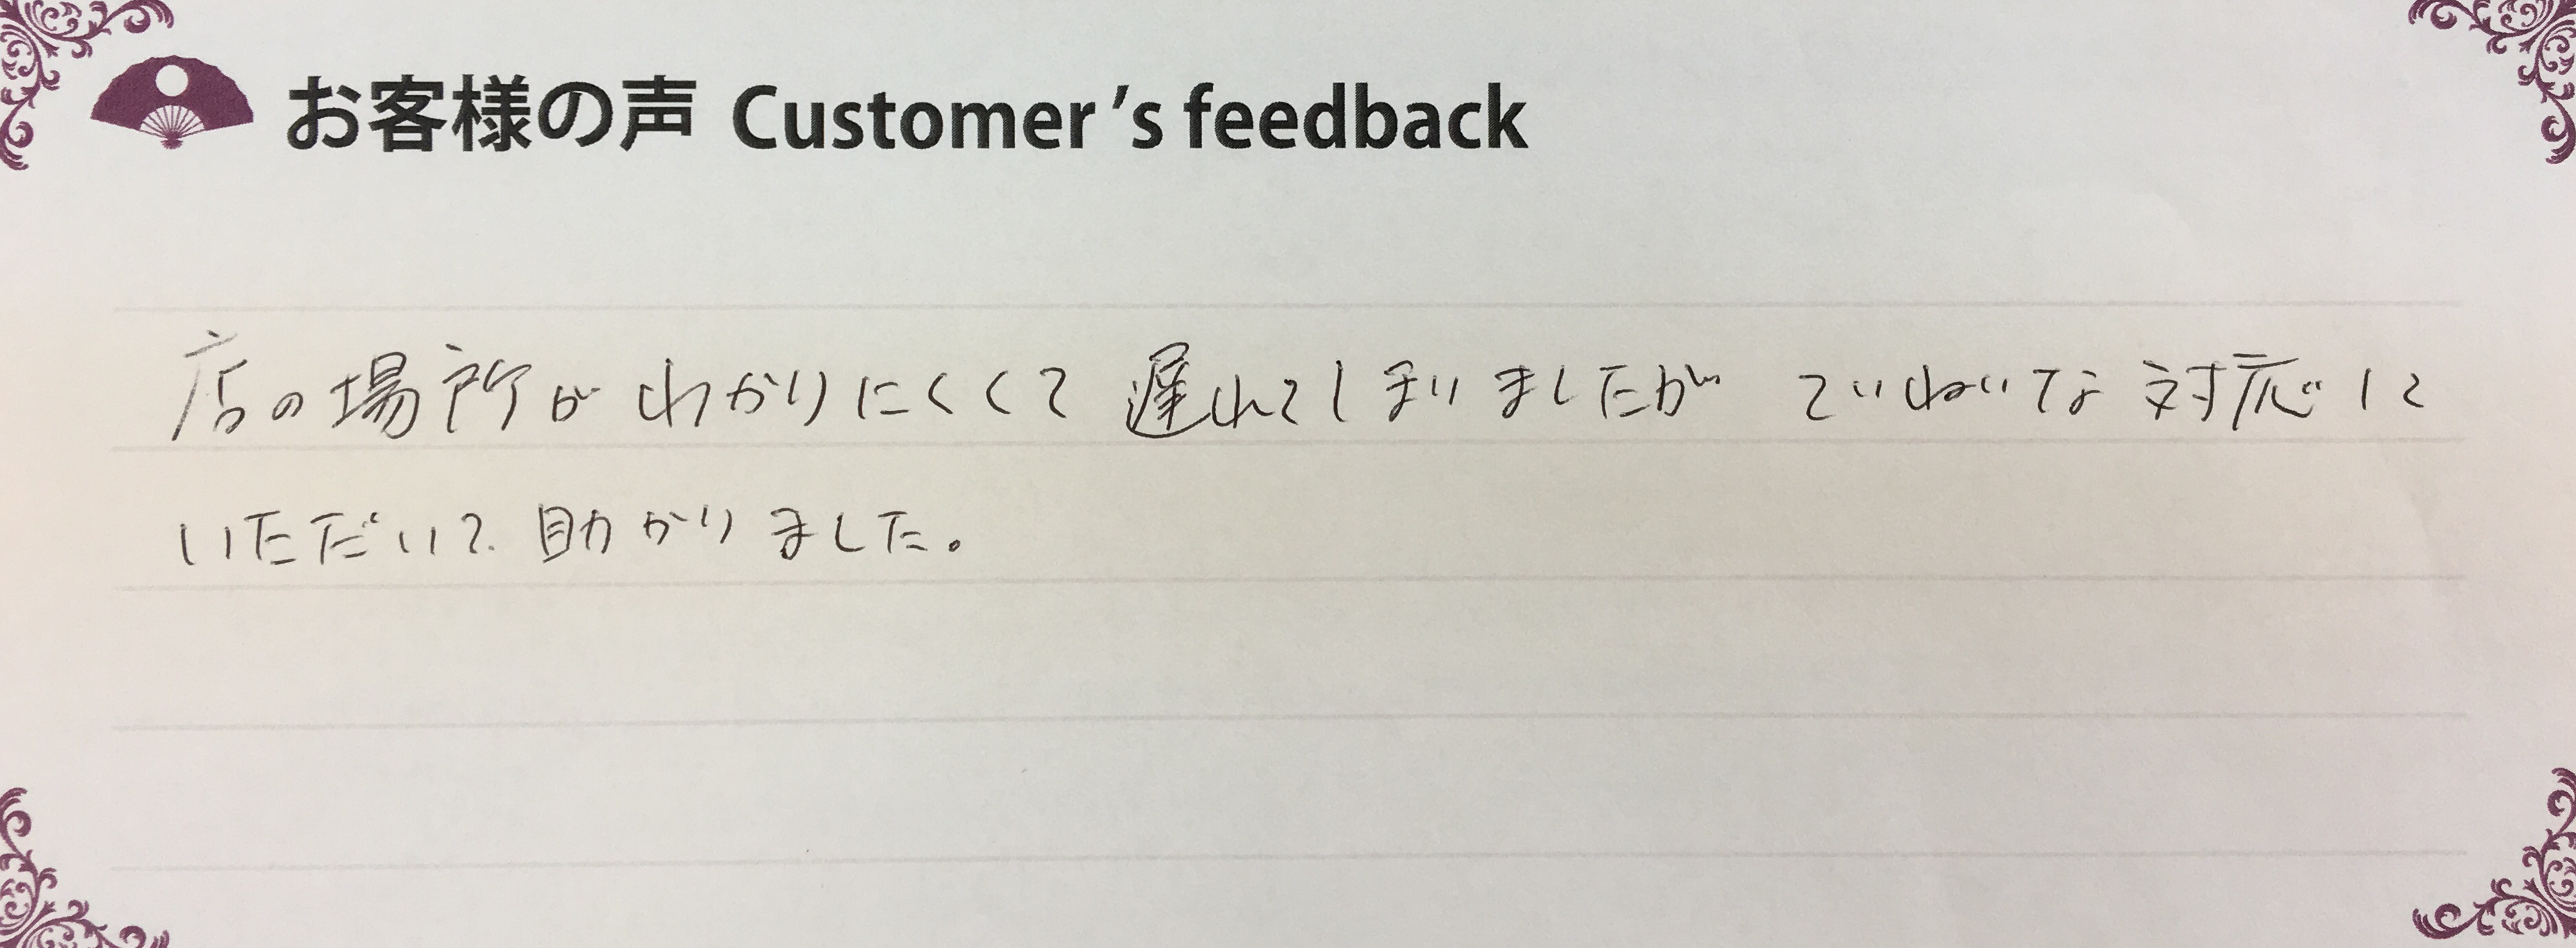 お客様の声 Customer's feedback
店の場所がわかりにくくて 遅れてしまいましたが ていねいな対応して
いただいて 助かりました。